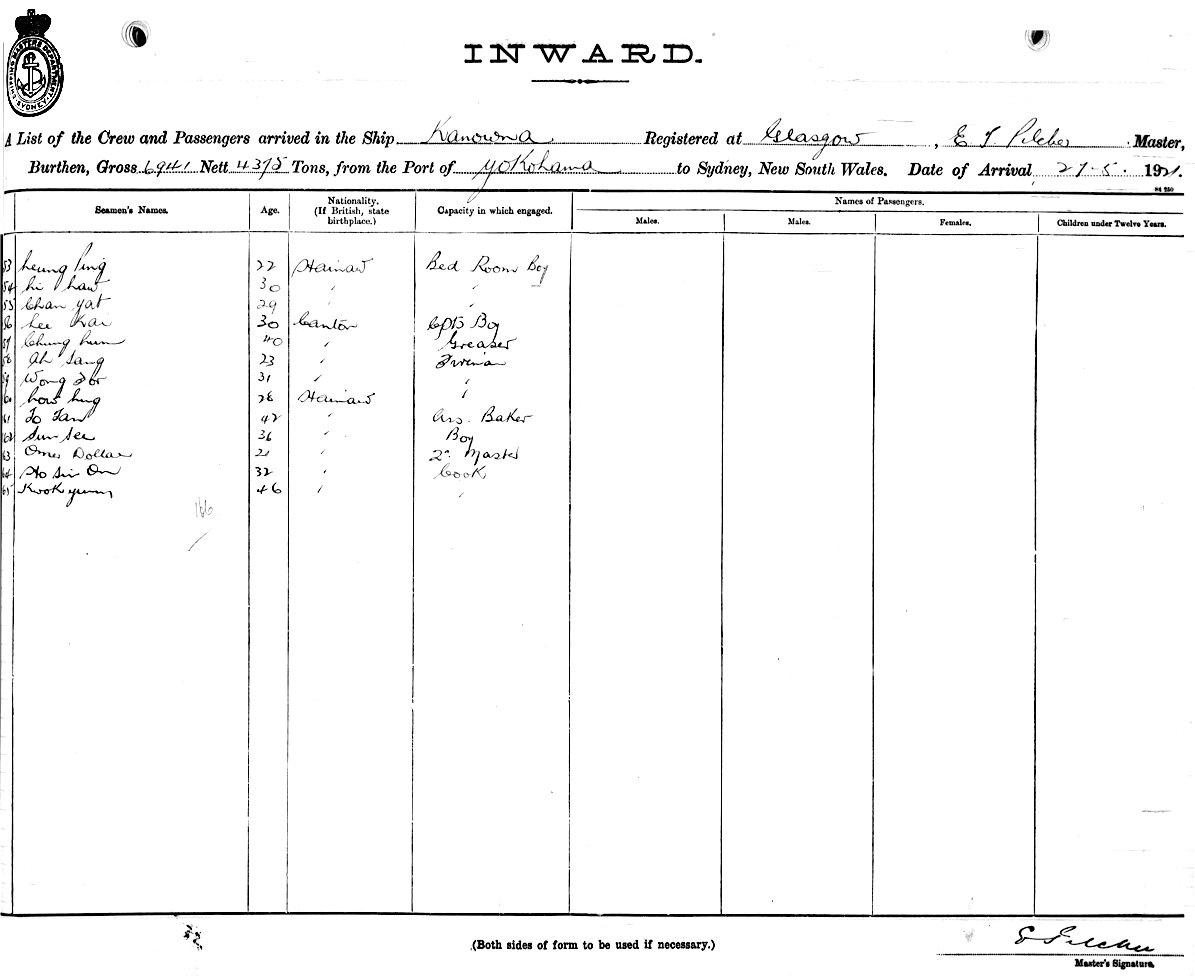 SHIPPING MASTERS DEPARTMENT SYDNEY
INWARD.
A List of the Crew and Passengers arrived in the Ship Kanowna Registered at Glasgow, E J Pilcher Master,
Burthen, Gross 6941 Nett Tons, from the Port of Yokohama to Sydney, New South Wales. Date of Arrival 27.5. 1921.
84 250
Seamen's Names. Age. Nationality. (If British, state birthplace.) Capacity in which engaged. Names of Passengers.
Males. Males. Females. Children under Twelve Years.
53 Ping 22 Hainan Bed Room Boy
54 30 " "
55 Chan Yat 29 " "
56 Lee Kai 30 Canton Cpts Boy
57 Chung 40 " Greaser
58 Ah Sang 23 " Fireman
59 Wong For 31 " "
60 28 Hainan "
61 To Tan 42 " Ass. Baker
62 Sun See 36 " Boy
63 Omer Dollar 21 " 2nd Master
64 Ho Sin On 32 " Cook
65 Kwok 46 " "
166
(Both sides of form to be used if necessary.)
E J Pilcher
Master's Signature.